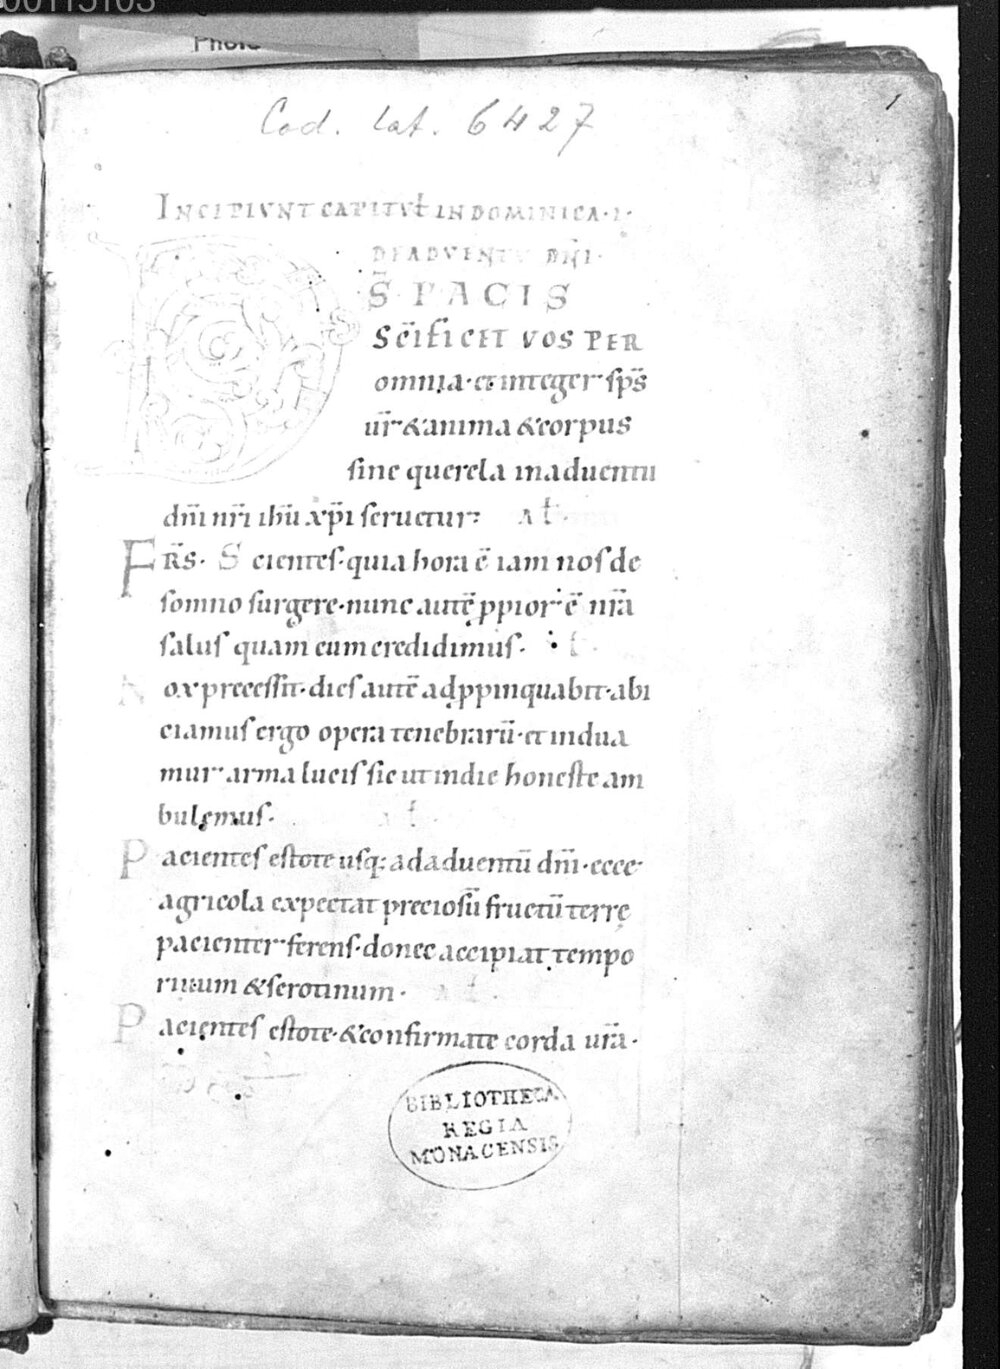 00115103
Photo
Cod. lat. 6427
1
INCIPIVNT CAPITVŁ IN DOMINICA · I ·
DE ADVENTV DN̄I ·
D S̄ PACIS
SC̄IFICET VOS PER
omnia · et integer sp̄s
ur̄ & anima & corpus
sine querela in aduentu
dn̄i nr̄i ih̄u xp̄i seruetur · Ał
FR̄S · Scientes · quia hora ē iam nos de
somno surgere · nunc autē ppior ē nr̄a
salus quam cum credidimus ·
Nox precessit · dies autē adppinquabit · abi
ciamus ergo opera tenebrarū · et indua
mur arma lucis sic ut in die honeste am
bulemus · Ał
Pacientes estote usq; ad aduentū dn̄i · ecce
agricola expectat preciosū fructū terrę
pacienter ferens · donec accipiat tempo
riuum & serotinum · Ał
Pacientes estote · & confirmate corda ur̄a ·
BIBLIOTHECA
REGIA
MONACENSIS